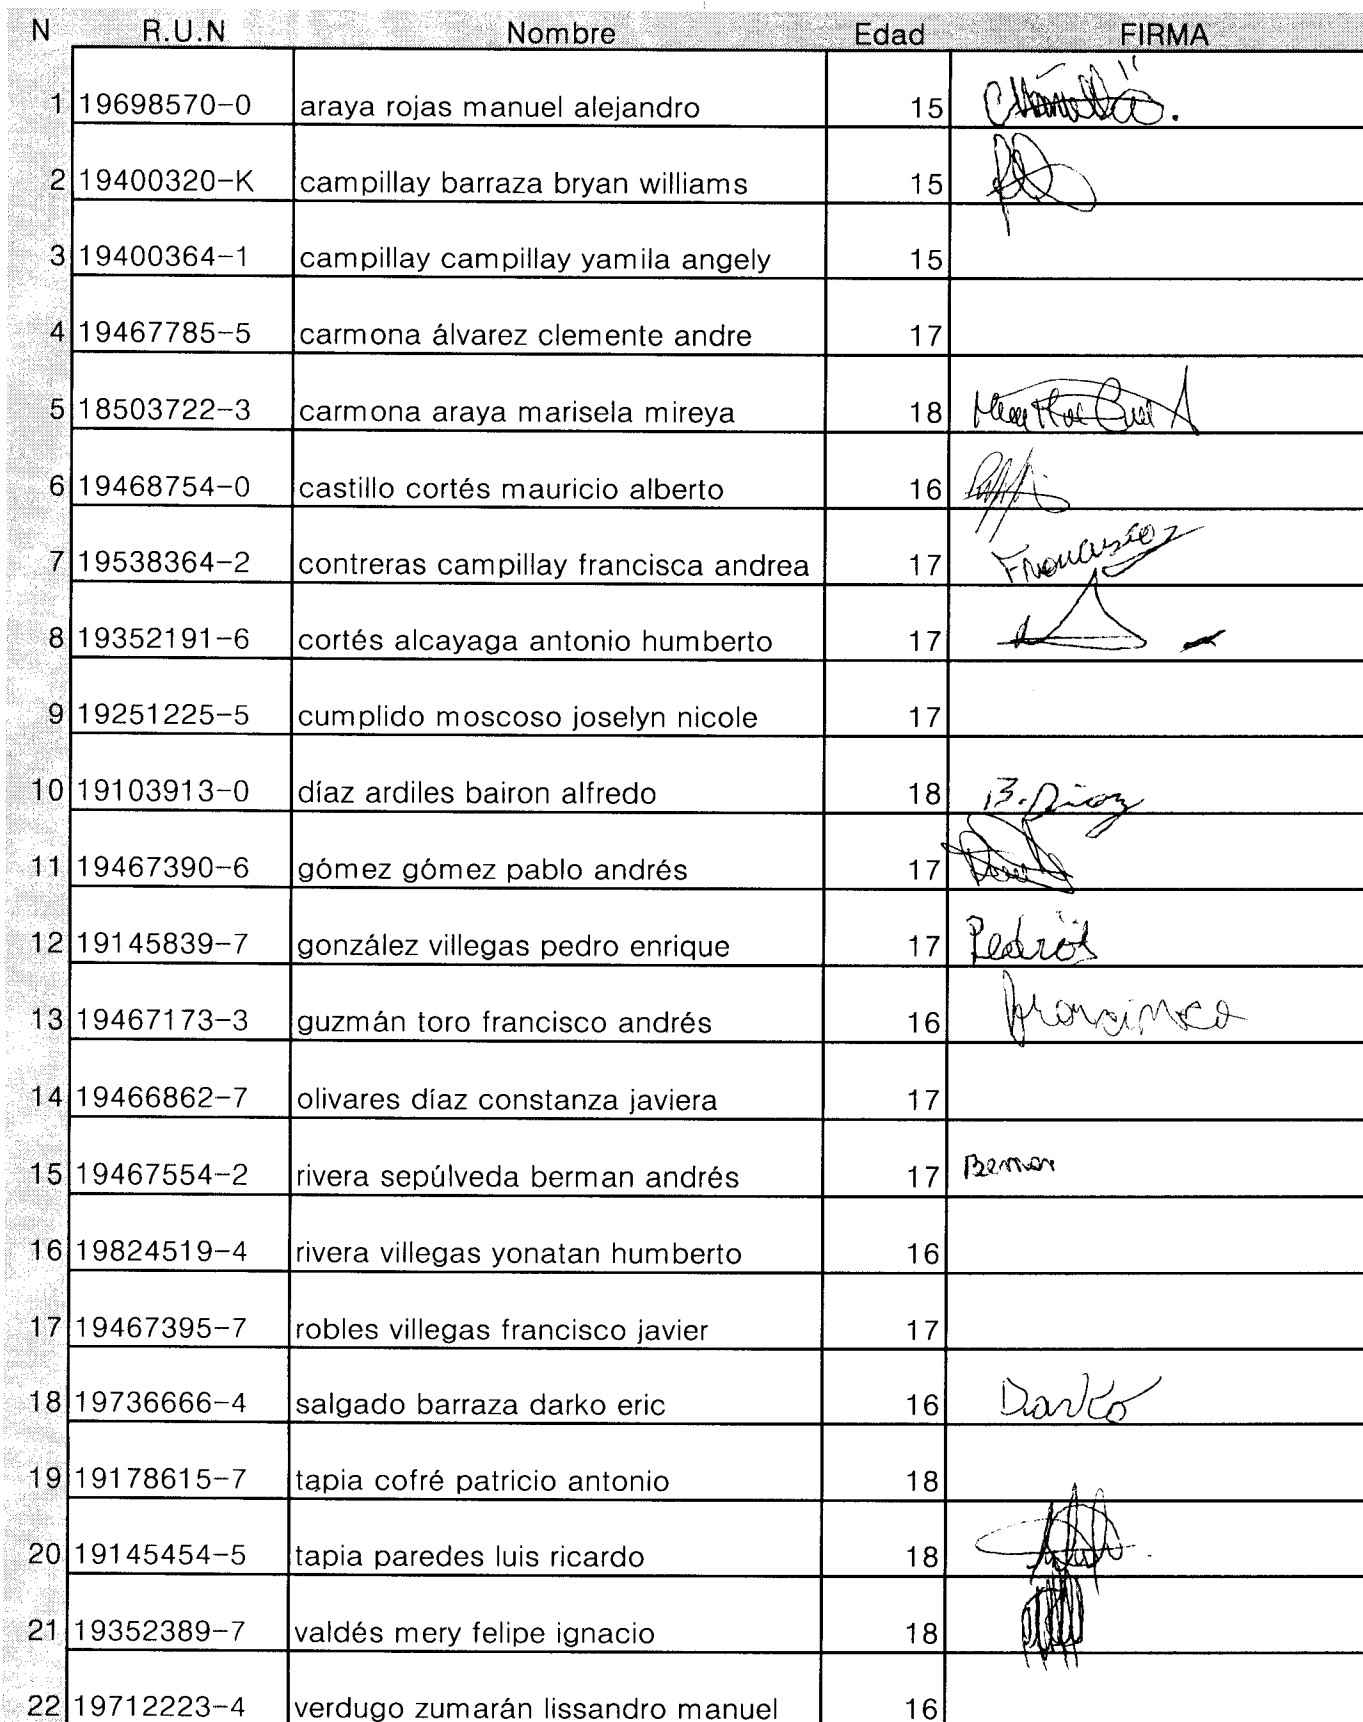 N R.U.N Nombre Edad FIRMA
1 19698570-0 araya rojas manuel alejandro 15
2 19400320-K campillay barraza bryan williams 15
3 19400364-1 campillay campillay yamila angely 15
4 19467785-5 carmona álvarez clemente andre 17
5 18503722-3 carmona araya marisela mireya 18
6 19468754-0 castillo cortés mauricio alberto 16
7 19538364-2 contreras campillay francisca andrea 17
8 19352191-6 cortés alcayaga antonio humberto 17
9 19251225-5 cumplido moscoso joselyn nicole 17
10 19103913-0 díaz ardiles bairon alfredo 18 B. Diaz
11 19467390-6 gómez gómez pablo andrés 17
12 19145839-7 gonzález villegas pedro enrique 17
13 19467173-3 guzmán toro francisco andrés 16
14 19466862-7 olivares díaz constanza javiera 17
15 19467554-2 rivera sepúlveda berman andrés 17
16 19824519-4 rivera villegas yonatan humberto 16
17 19467395-7 robles villegas francisco javier 17
18 19736666-4 salgado barraza darko eric 16 Darko
19 19178615-7 tapia cofré patricio antonio 18
20 19145454-5 tapia paredes luis ricardo 18
21 19352389-7 valdés mery felipe ignacio 18
22 19712223-4 verdugo zumarán lissandro manuel 16